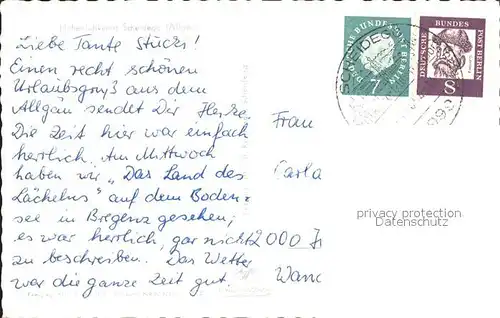 Liebe Tante Stücks!
Einen recht schönen
Urlaubsgruß aus dem
Allgäu sendet Dir
Die Zeit hier war einfach
herrlich. Am Mittwoch
haben wir „Das Land des
Lächelns" auf dem Boden-
see in Bregenz gesehen,
es war herrlich, gar nicht
zu beschreiben. Das Wetter
war die ganze Zeit gut.
DEUTSCHE BUNDESPOST BERLIN
7
DEUTSCHE BUNDESPOST BERLIN
8
Frau
Carla
2000
privacy protection
Datenschutz